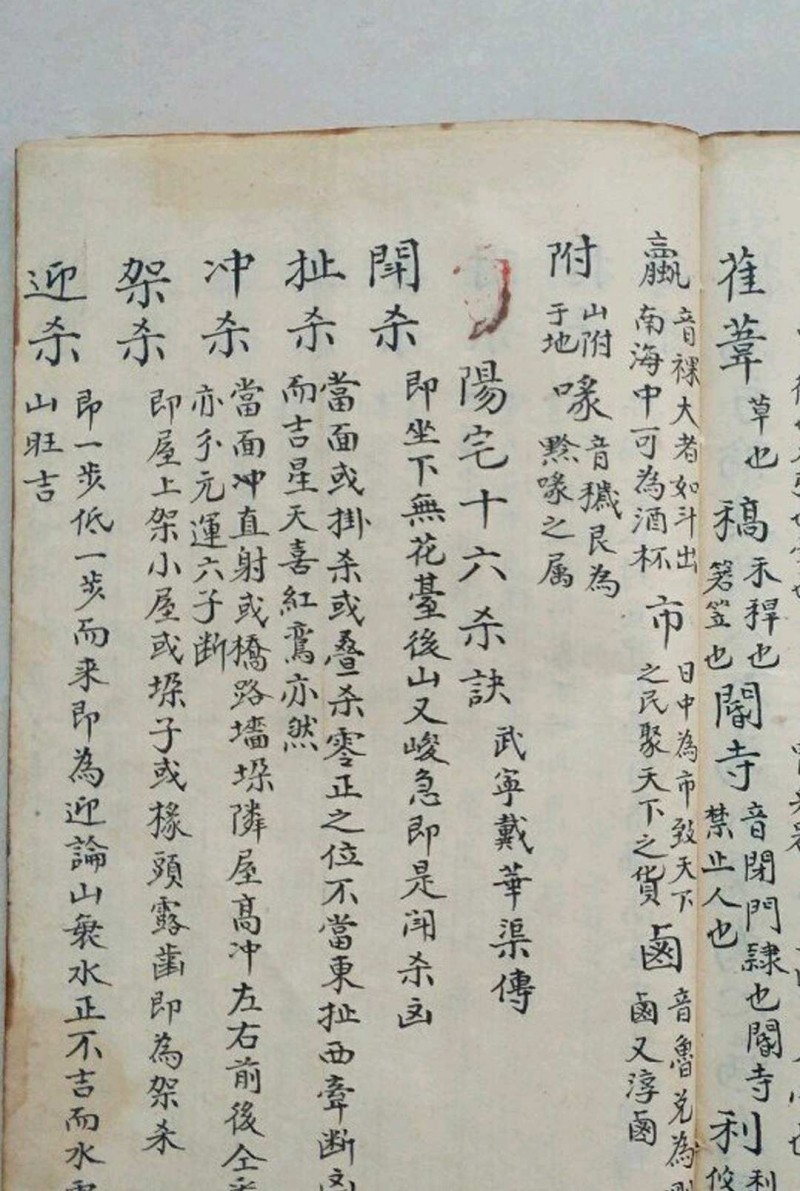 萑葦 草也 稿 禾稈也 箬笠也 閽寺 音閉門隸也閽寺 禁止人也 利
蠃 音裸大者如斗出 南海中可為酒杯 市 日中為市致天下 之民聚天下之貨 鹵 音魯兌為 鹵又淳鹵
附 山附 于地 喙 音穢艮為 黔喙之属
陽宅十六杀訣 武寧戴華渠傳
閗杀 即坐下無花䑓後山又峻急即是閗杀凶
扯杀 當面或掛杀或叠杀零正之位不當東扯西牽断凶
而吉星天喜紅鸞亦然
冲杀 當面冲直射或橋路墻垛隣屋高冲左右前後仝
亦分元運六子断
架杀 即屋上架小屋或垛子或椽頭露齒即為架杀
迎杀 即一步低一步而来即為迎論山衰水正不吉而水
山旺吉